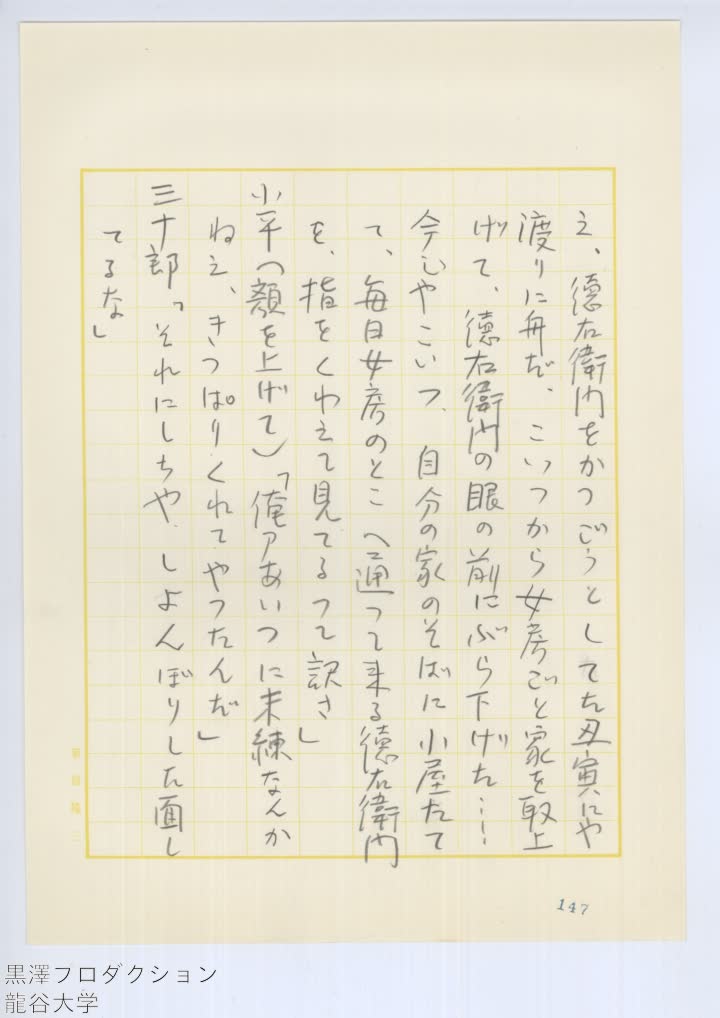 え、徳右衛門をかつごうとしてた丑寅にや
渡りに舟だ、こいつから女房ごと家を取上
げて、徳右衛門の眼の前にぶら下げた……
今じやこいつ、自分の家のそばに小屋たて
て、毎日女房のとこへ通つて来る徳右衛門
を、指をくわえて見てるつて訳さ」
小平（顔を上げて）「俺アあいつに未練なんか
ねえ、きつぱりくれてやつたんだ」
三十郎「それにしちや、しよんぼりした面し
てるな」
147
黒澤プロダクション
龍谷大学